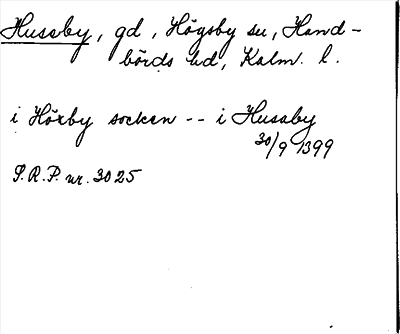 Hussby, gd, Högsby sn, Hand-
börds hd, Kalm. l.
i Höxby socken -- i Hussaby
30/9 1399
S.R.P. nr. 3025